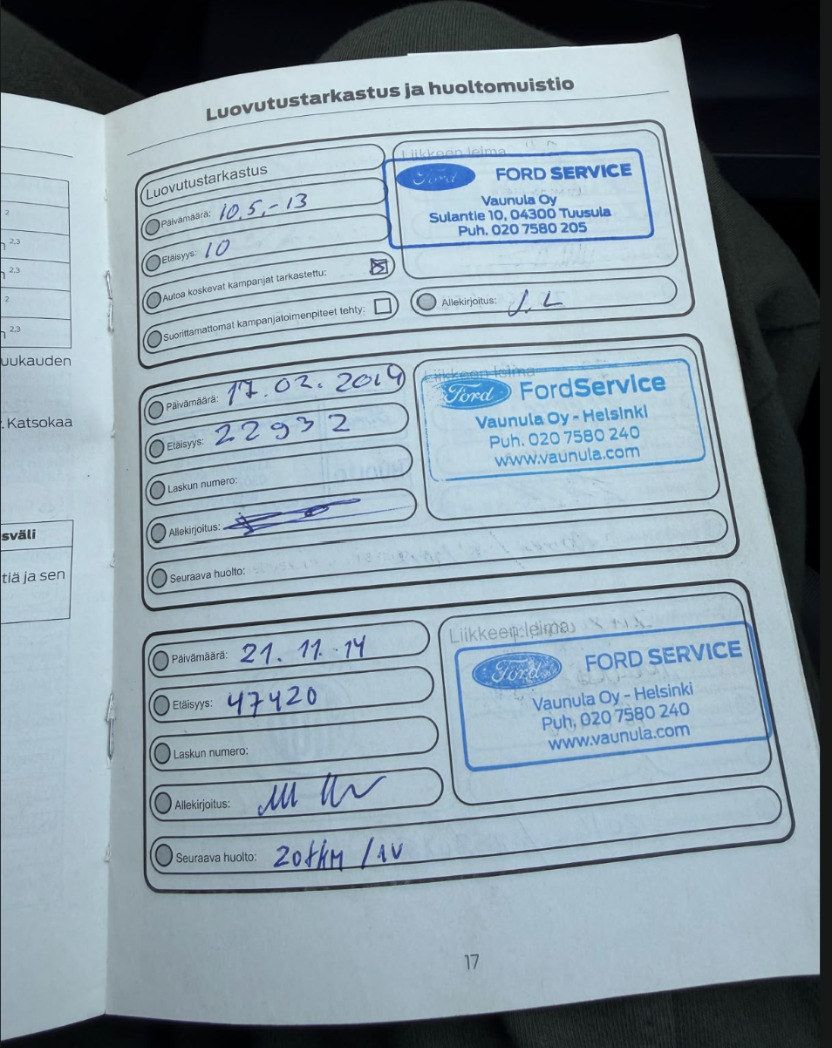 Luovutustarkastus ja huoltomuistio
2
2,3
2,3
2
2,3
uukauden
. Katsokaa
sväli
tiä ja sen
Luovutustarkastus
Päivämäärä: 10.5.-13
Etäisyys: 10
Autoa koskevat kampanjat tarkastettu:
Suorittamattomat kampanjatoimenpiteet tehty:
Liikkeen leima
Ford
FORD SERVICE
Vaunula Oy
Sulantie 10, 04300 Tuusula
Puh. 020 7580 205
Allekirjoitus: J.L
Päivämäärä: 17.02.2014
Etäisyys: 22932
Laskun numero:
Allekirjoitus:
Seuraava huolto:
Liikkeen leima
Ford FordService
Vaunula Oy - Helsinki
Puh. 020 7580 240
www.vaunula.com
Päivämäärä: 21.11.-14
Etäisyys: 47420
Laskun numero:
Allekirjoitus:
Seuraava huolto: 20tkm /1V
Liikkeen leima
Ford
FORD SERVICE
Vaunula Oy - Helsinki
Puh. 020 7580 240
www.vaunula.com
17